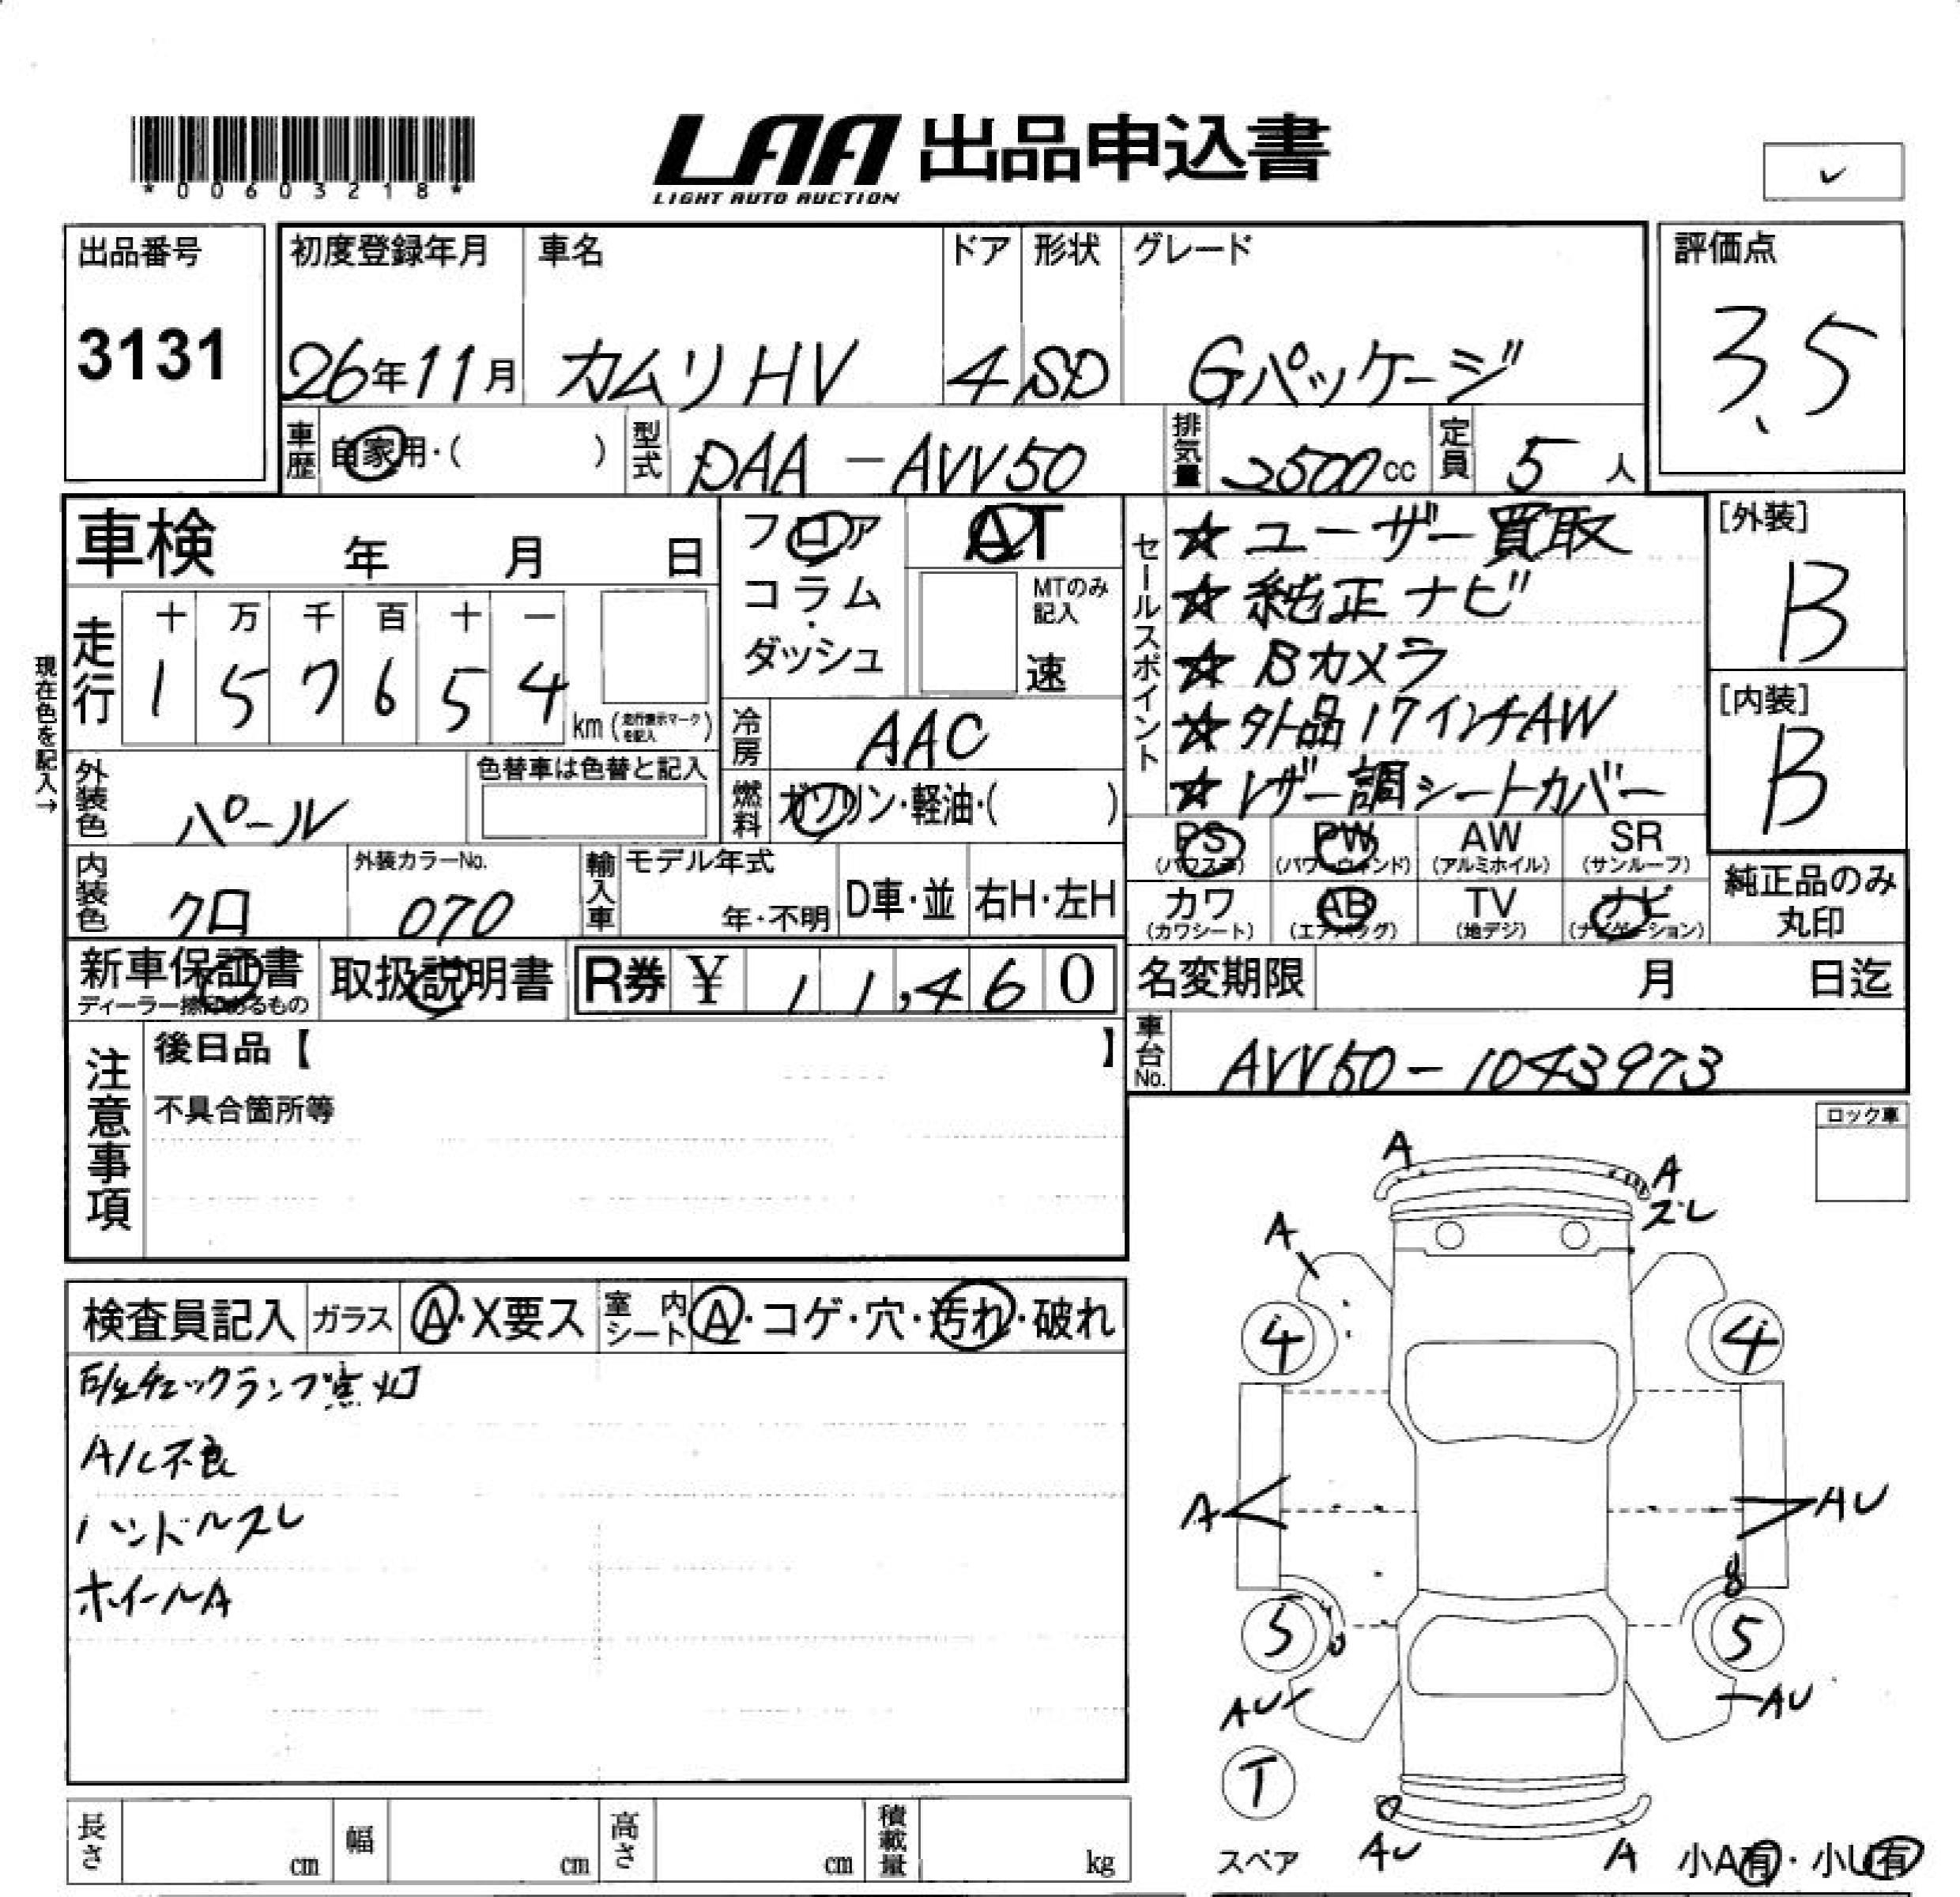 *00603218*
LAA 出品申込書
LIGHT AUTO AUCTION
✓
出品番号 初度登録年月 車名 ドア 形状 グレード 評価点
3131 26年11月 カムリHV 4 SD Gパッケージ 3.5
車歴 自家用・( ) 型式 DAA-AVV50 排気量 2500cc 定員 5人
車検 年 月 日 フロア AT
コラム・ダッシュ MTのみ記入 速
セールスポイント
☆ユーザー買取
☆純正ナビ
☆Bカメラ
☆外品17インチAW
☆レザー調シートカバー
[外装]
B
[内装]
B
現在色を記入→
走行 十 万 千 百 十 一
1 5 7 6 5 4 km(走行表示マークを記入)
冷房 AAC
外装色 パール 色替車は色替と記入
燃料 ガソリン・軽油・( )
PS PW AW SR
(パワステ) (パワーウィンド) (アルミホイル) (サンルーフ)
内装色 クロ 外装カラーNo. 070 輸入車 モデル年式 年・不明 D車・並 右H・左H
カワ AB TV ナビ
(カワシート) (エアバッグ) (地デジ) (ナビゲーション)
純正品のみ
丸印
新車保証書 取扱説明書 R券 ¥ 11,460
ディーラー捺印あるもの
名変期限 月 日迄
注意事項 後日品【 】
車台No. AVV50-1043973
不具合箇所等
ロック車
検査員記入 ガラス A・X要ス 室内シート A・コゲ・穴・汚れ・破れ
チェックランプ点灯
A/C不良
ハンドルスレ
ホイールA
A
A
ズレ
A
4 4
A AU
5 5
AU AU
T
スペア AU A 小A有・小U有
長さ cm 幅 cm 高さ cm 積載量 kg